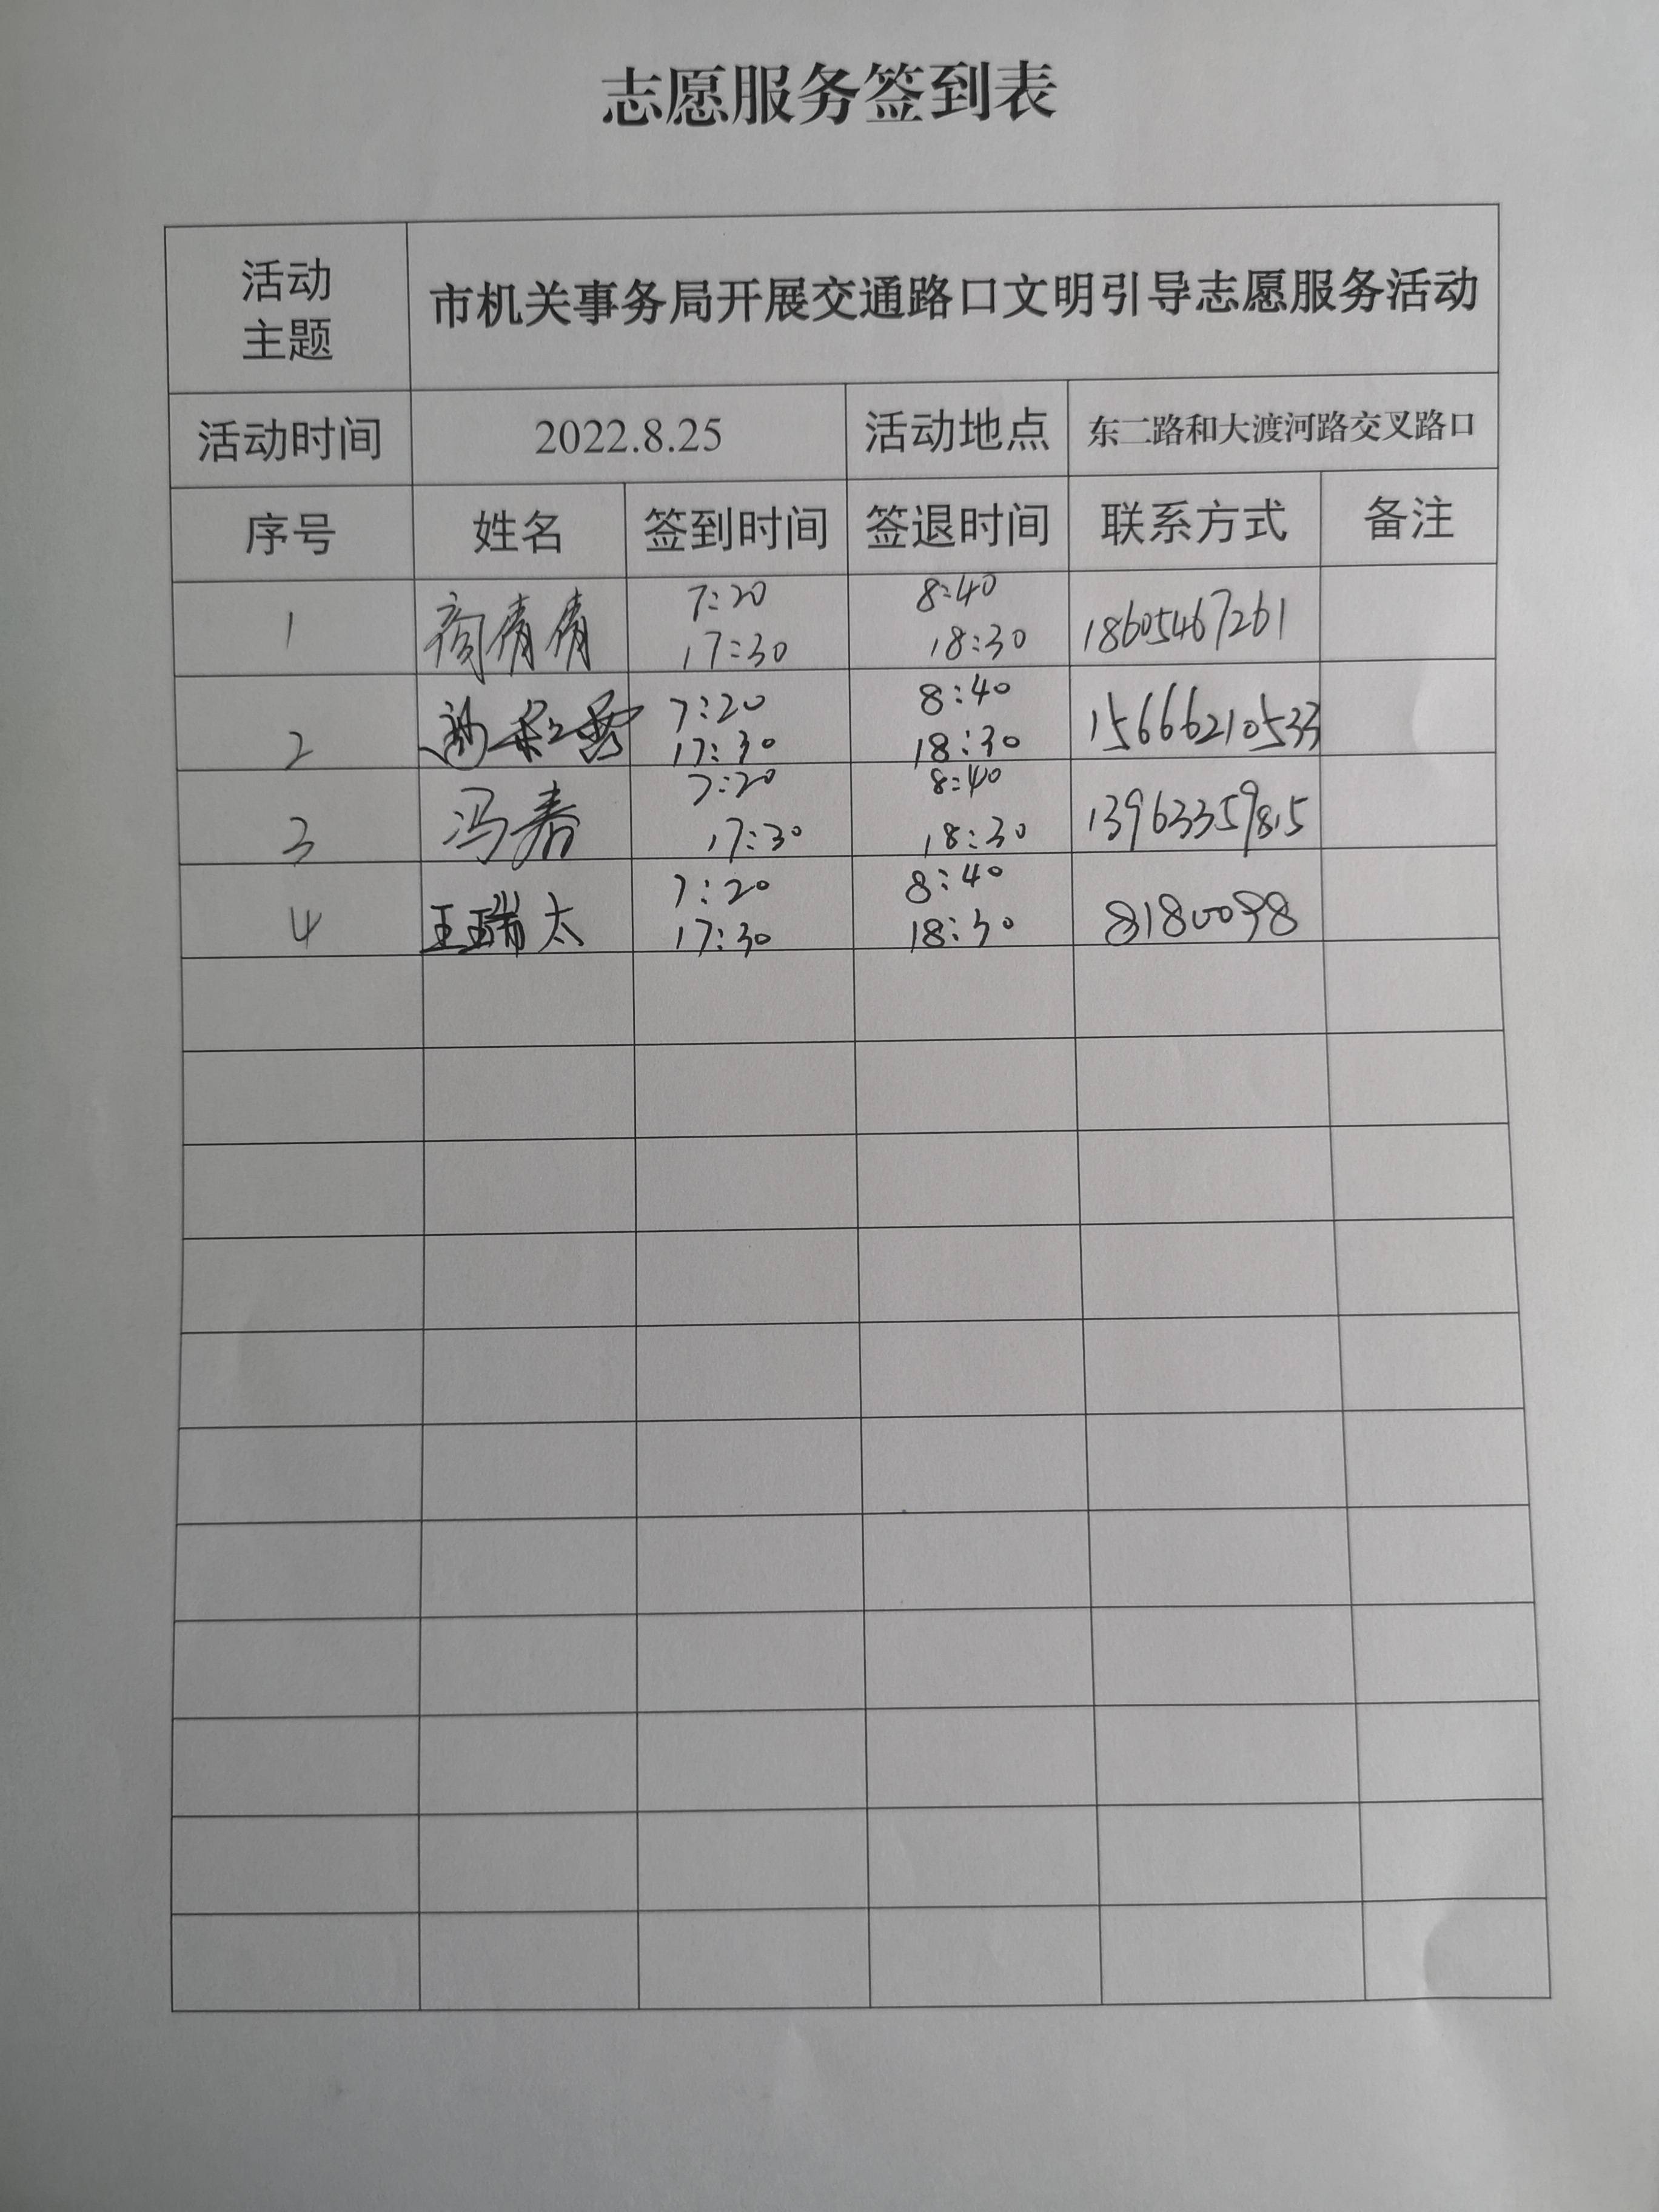 志愿服务签到表
活动
主题
市机关事务局开展交通路口文明引导志愿服务活动
活动时间 2022.8.25 活动地点 东二路和大渡河路交叉路口
序号 姓名 签到时间 签退时间 联系方式 备注
7:20 8:40
1 倩倩 17:30 18:30 18605467261
7:20 8:40
2 17:30 18:30 15666210533
7:20 8:40
3 冯春 17:30 18:30 13963359815
7:20 8:40
4 王瑞太 17:30 18:30 8180098